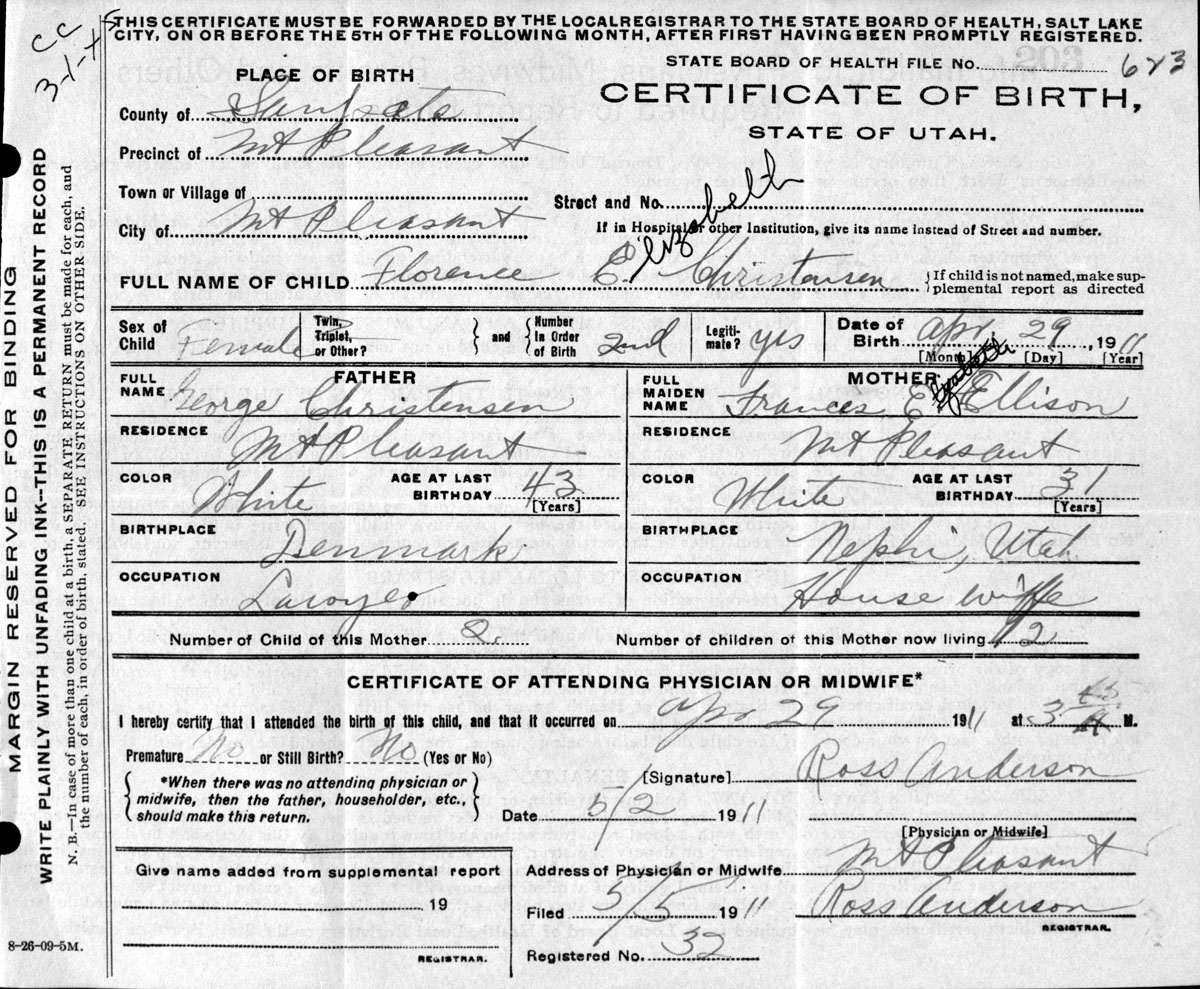 CC
3-1-45
THIS CERTIFICATE MUST BE FORWARDED BY THE LOCAL REGISTRAR TO THE STATE BOARD OF HEALTH, SALT LAKE
CITY, ON OR BEFORE THE 5TH OF THE FOLLOWING MONTH, AFTER FIRST HAVING BEEN PROMPTLY REGISTERED.
STATE BOARD OF HEALTH FILE No. 623
PLACE OF BIRTH
CERTIFICATE OF BIRTH,
STATE OF UTAH.
County of Sanpete
Precinct of Mt Pleasant
Town or Village of
Street and No.
City of Mt Pleasant
If in Hospital or other Institution, give its name instead of Street and number.
Elizabeth
FULL NAME OF CHILD Florence E. Christensen
{If child is not named, make sup-
plemental report as directed
Sex of Child Female
Twin, Triplet, or Other?
} and {
Number In Order of Birth 2nd
Legiti-mate? yes
Date of Birth Apr 29, 1911
[Month] [Day] [Year]
FATHER
FULL NAME George Christensen
RESIDENCE Mt Pleasant
COLOR White
AGE AT LAST BIRTHDAY 43 [Years]
BIRTHPLACE Denmark
OCCUPATION
MOTHER
Elizabeth
FULL MAIDEN NAME Frances E Ellison
RESIDENCE Mt Pleasant
COLOR White
AGE AT LAST BIRTHDAY 31 [Years]
BIRTHPLACE Nephi, Utah
OCCUPATION House wife
Number of Child of this Mother 2
Number of children of this Mother now living 2
CERTIFICATE OF ATTENDING PHYSICIAN OR MIDWIFE*
I hereby certify that I attended the birth of this child, and that it occurred on Apr 29 1911 at 3 M.
Premature No or Still Birth? No (Yes or No)
{*When there was no attending physician or
midwife, then the father, householder, etc.,
should make this return.}
[Signature] Ross Anderson
Date 5/2 1911
[Physician or Midwife]
Give name added from supplemental report
19
REGISTRAR.
Address of Physician or Midwife Mt Pleasant
Filed 5/5 1911 Ross Anderson
REGISTRAR.
Registered No. 32
8-26-09-5M.
MARGIN RESERVED FOR BINDING
WRITE PLAINLY WITH UNFADING INK--THIS IS A PERMANENT RECORD
N. B.—In case of more than one child at a birth, a SEPARATE RETURN must be made for each, and
the number of each, in order of birth, stated. SEE INSTRUCTIONS ON OTHER SIDE.